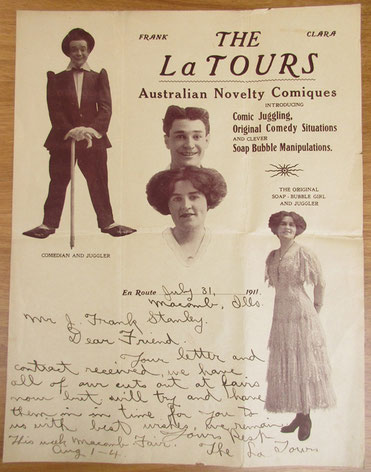 FRANK CLARA
THE
La TOURS
Australian Novelty Comiques
INTRODUCING
Comic Juggling,
Original Comedy Situations
AND CLEVER
Soap Bubble Manipulations.
THE ORIGINAL
SOAP-BUBBLE GIRL
AND JUGGLER
COMEDIAN AND JUGGLER
En Route July 31, 1911.
Macomb, Ills.
Mr J. Frank Stanley.
Dear Friend.
Your letter and
contract received, we have
all of our cuts out at fairs
now but will try and have
them in in time for you to
us with best wishes, we remain
Yours Resp.
This week Macomb Fair. The La Tours
Aug 1-4.